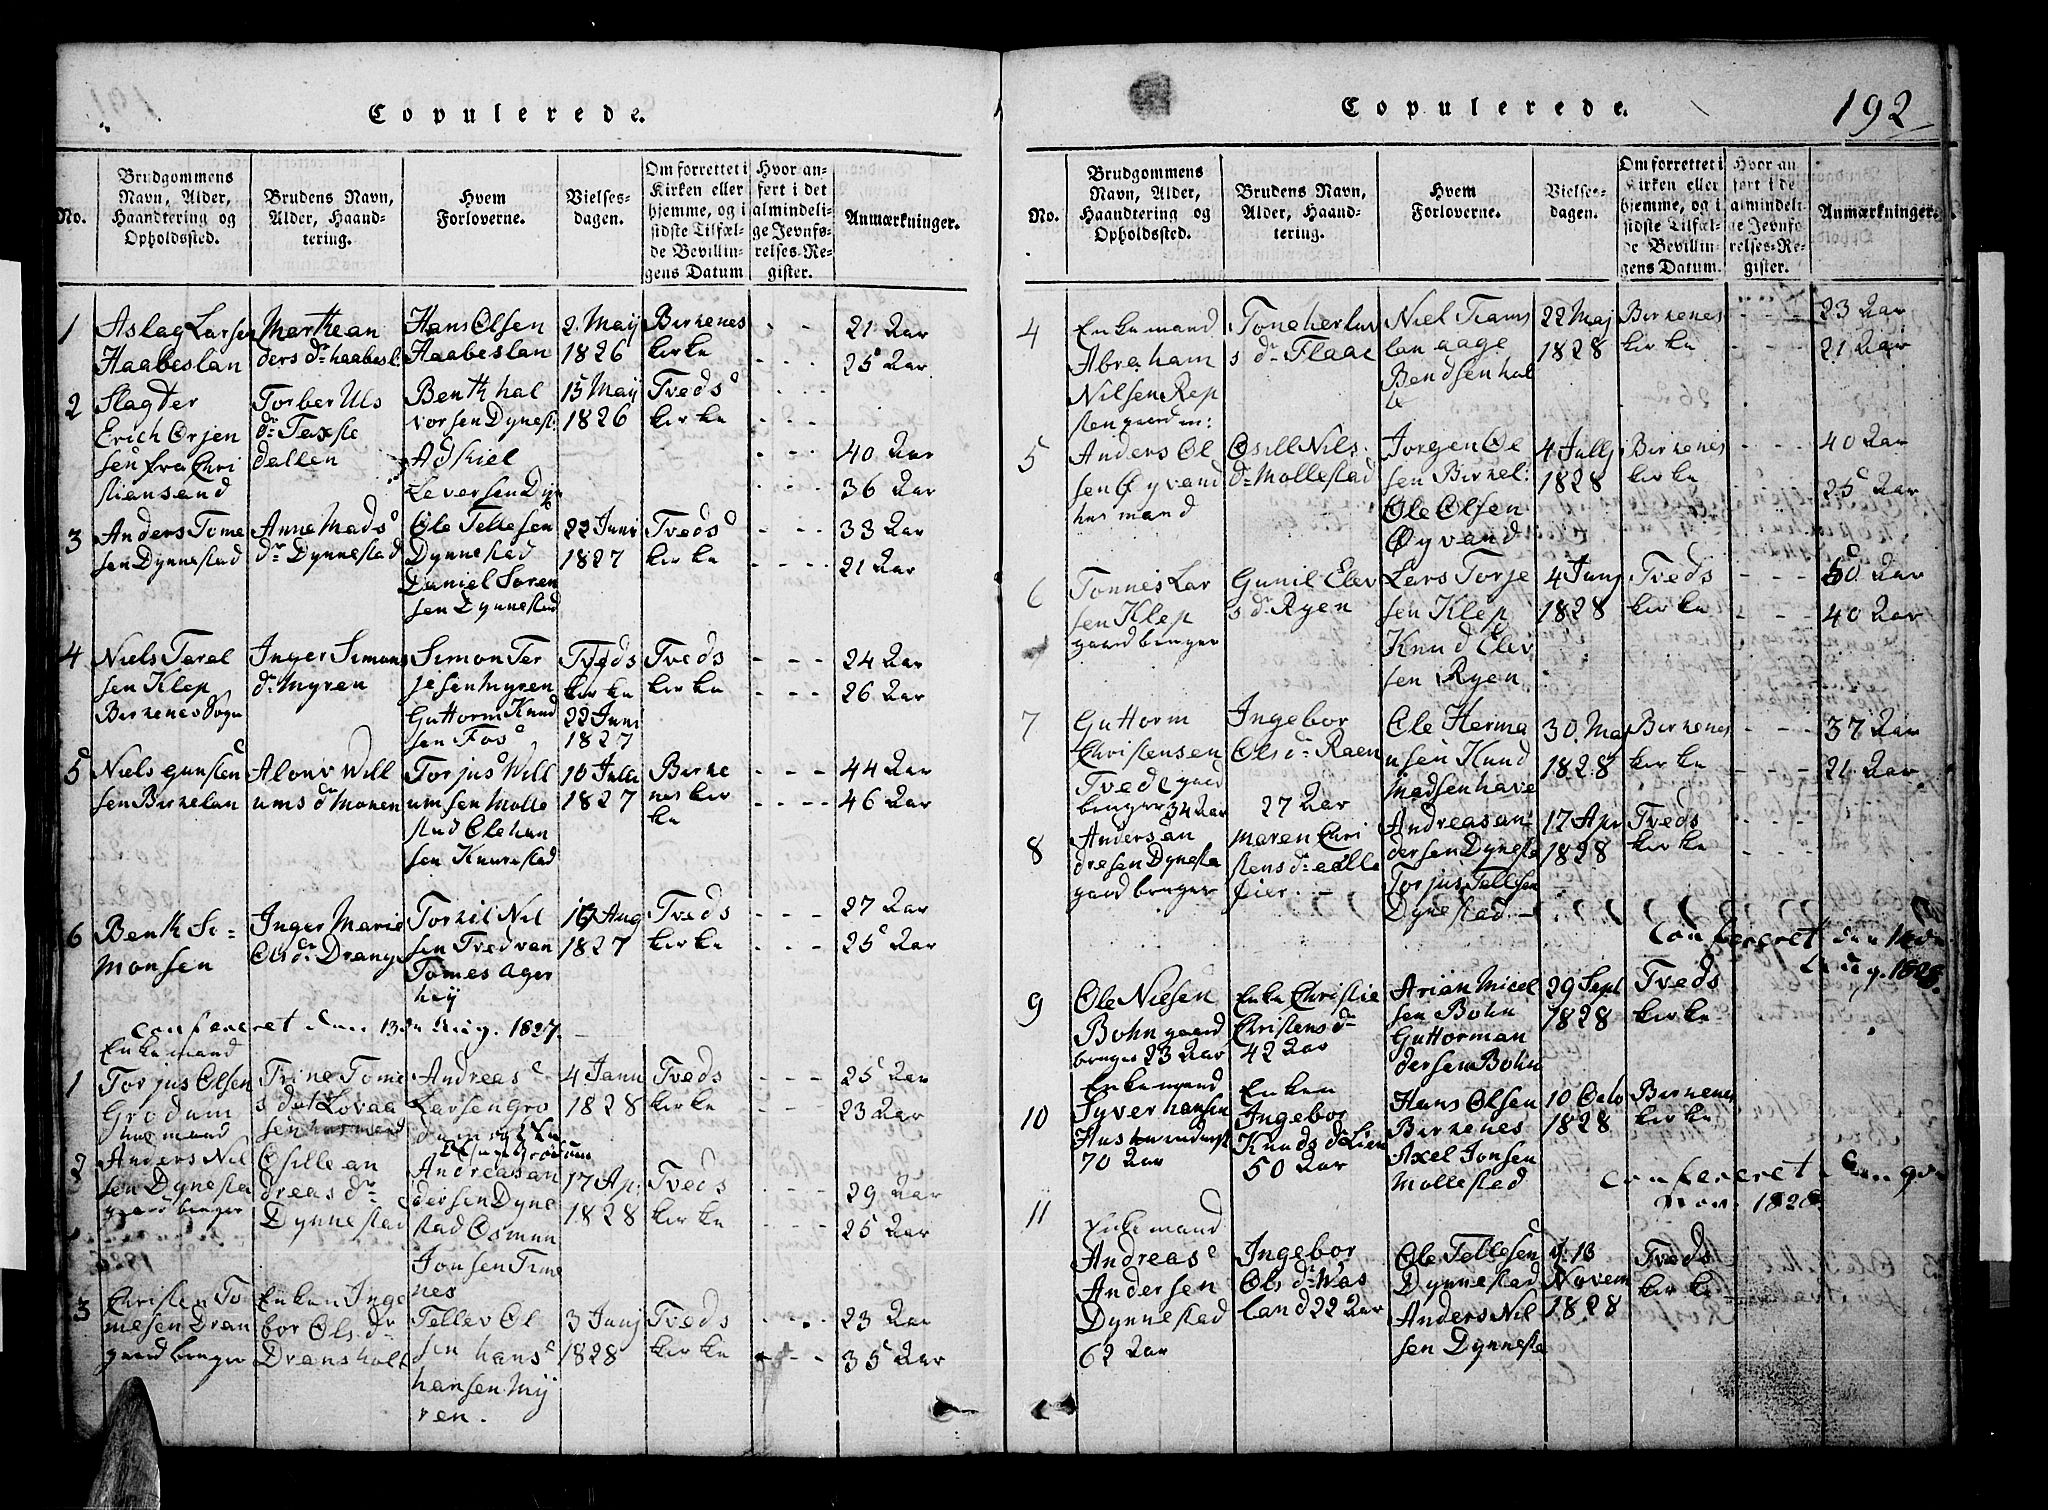 Copulerede.
No.
Brudgommens
Navn, Alder,
Haandtering og
Opholdssted.
Brudens Navn,
Alder, Haand-
tering.
Hvem
Forloverne.
Vielses-
dagen.
Om forrettet i
Kirken eller
hjemme, og i
sidste Tilfæl-
de Bevillin-
gens Datum
Hvor an-
ført i det
almindeli-
ge Jevnfø-
relses-Re-
gister.
Anmærkninger.
1
Aslag Larsen
Haabeslan
Marthe an
ders dr haabesl
Hans Olsen
Haabeslan
2. May
1826
Birkenes
kirke
21 Aar
25 Aar
2
Slagter
Erich Orjen
sen fra Chri
stiansand
Torber Uls
dr Taxle
dallen
Benth hal
vorsen Dynest
Adskiel
Leversen Dyn
15 May
1826
Tveds
kirke
40 Aar
36 Aar
3
Anders Tome
sen Dynnestad
Anne Mads
dr Dynnestad
Ole Tellesen
Dynnestad
Daniel Soren
sen Dynnestad
22 Juni
1827
Tveds
kirke
33 Aar
21 Aar
4
Niels Terel
sen Klep
Birkenes Sogn
Inger Simons
dr Myren
Simon Ter
jesen Myren
Guttorm Knud
sen Fos
Tveds
kirke
22 Juni
1827
Tveds
kirke
24 Aar
26 Aar
5
Niels gunsten
sen Birkelan
Alonv Will
ums dr Monen
Torjus Will
umsen Molle
stad Ole han
sen Knarestad
10 Julii
1827
Birke
nes kir
ke
44 Aar
46 Aar
6
Benth Si-
monsen
Inger Marie
Ols dr Drange
Torkil Nil
sen Tved van
Tomes Ager
hey
16 Aug
1827
Tveds
kirke
27 Aar
25 Aar
Confereret den 13de Aug. 1827.
1
Enkemand
Torjus Olsen
Grodum
husmand
Trine Tome
s dat Lovaa
sen husmand
Andreas
Larsen Gro
dum og
Olsen Grodum
4 Janu
1828
Tveds
kirke
25 Aar
23 Aar
2
Anders Nil
sen Dynesta
gaard bruger
Osille an
dreas dr
Dynnestad
Andreas an
dersen Dyne
stad Osmun
Jonsen Time
nes
17 Ap:
1828
Tveds
kirke
29 Aar
25 Aar
3
Christen To
mesen Dran
gaard bruger
Enken Inge
bor Ols dr
Dransholt
Tellev Ol
sen hans
hansen My
ren.
3 Junj
1828
Tveds
kirke
23 Aar
35 Aar
Copulerede.
192
No.
Brudgommens
Navn, Alder,
Haandtering og
Opholdssted.
Brudens Navn,
Alder, Haand-
tering.
Hvem
Forloverne.
Vielses-
dagen.
Om forrettet i
Kirken eller
hjemme, og i
sidste Tilfæl-
de Bevillin-
gens Datum.
Hvor an
ført i de
almindeli-
ge Jevnfø-
relses-Re-
gister.
Anmærkninger.
4
Enkemand
Abraham
Nilsen Rep
sten gaard m:
Tone herluv
s dr Flaae
Niel Trams
lan aage
Bendsen hol
te
22 Maj
1828
Birkenes
kirke
23 Aar
21 Aar
5
Anders Ol
sen Øyvand
hus mand
Osill Nils.
dr Mollestad
Jorgen Ol
sen Birkel:
Ole Olsen
Øyvand
4 Julj
1828
Birkenes
kirke
40 Aar
25 Aar
6
Tonnis Lar
sen Klep
gaard bruger
Gunil Elev
s dr Ryen
Lars Torje
sen Klep
Knud Elev
sen Ryen
4 Junj
1828
Tveds
kirke
60 Aar
40 Aar
7
Guttorm
Christensen
Tved gaard
bruger 34 Aar
Ingebor
Ols dr Raen
27 Aar
Ole Herma
nsen Knud
Madsen have
30. Maj
1828
Birkenes
kirke
37 Aar
21 Aar
8
Anders an
dresen Dynesta
gaard bruger
Maren Chri
stens dr
Øier
Andreas an
dersen Dynesta
Torjus Tellsen
Dynestad
17 Apr
1828
Tveds
kirke
Confereret den
Aug. 1828.
9
Ole Nielsen
Bohn gaard
bruger 23 Aar
Enke Christie
Christens dr
42 Aar
Arian Micel
sen Bohn
Guttorm an
dersen Bohn
29 Sept
1828
Tveds
kirke
10
Enkemand
Syver hansen
Husmand
70 Aar
Enken
Ingebor
Knuds dr Lien
50 Aar
Hans Olsen
Birkenes
Axel Jonsen
Mollestad
10 Octo
1828
Birkenes
kirke
Confereret
Nov. 1828.
11
Enkemand
Andreas
Andersen
Dynnestad
62 Aar
Ingebor
Ols dr Was
land 22 Aar
Ole Tellesen
Dynnestad
Anders Nil
sen Dynnesta
d. 13
Novem
1828
Tveds
kirke